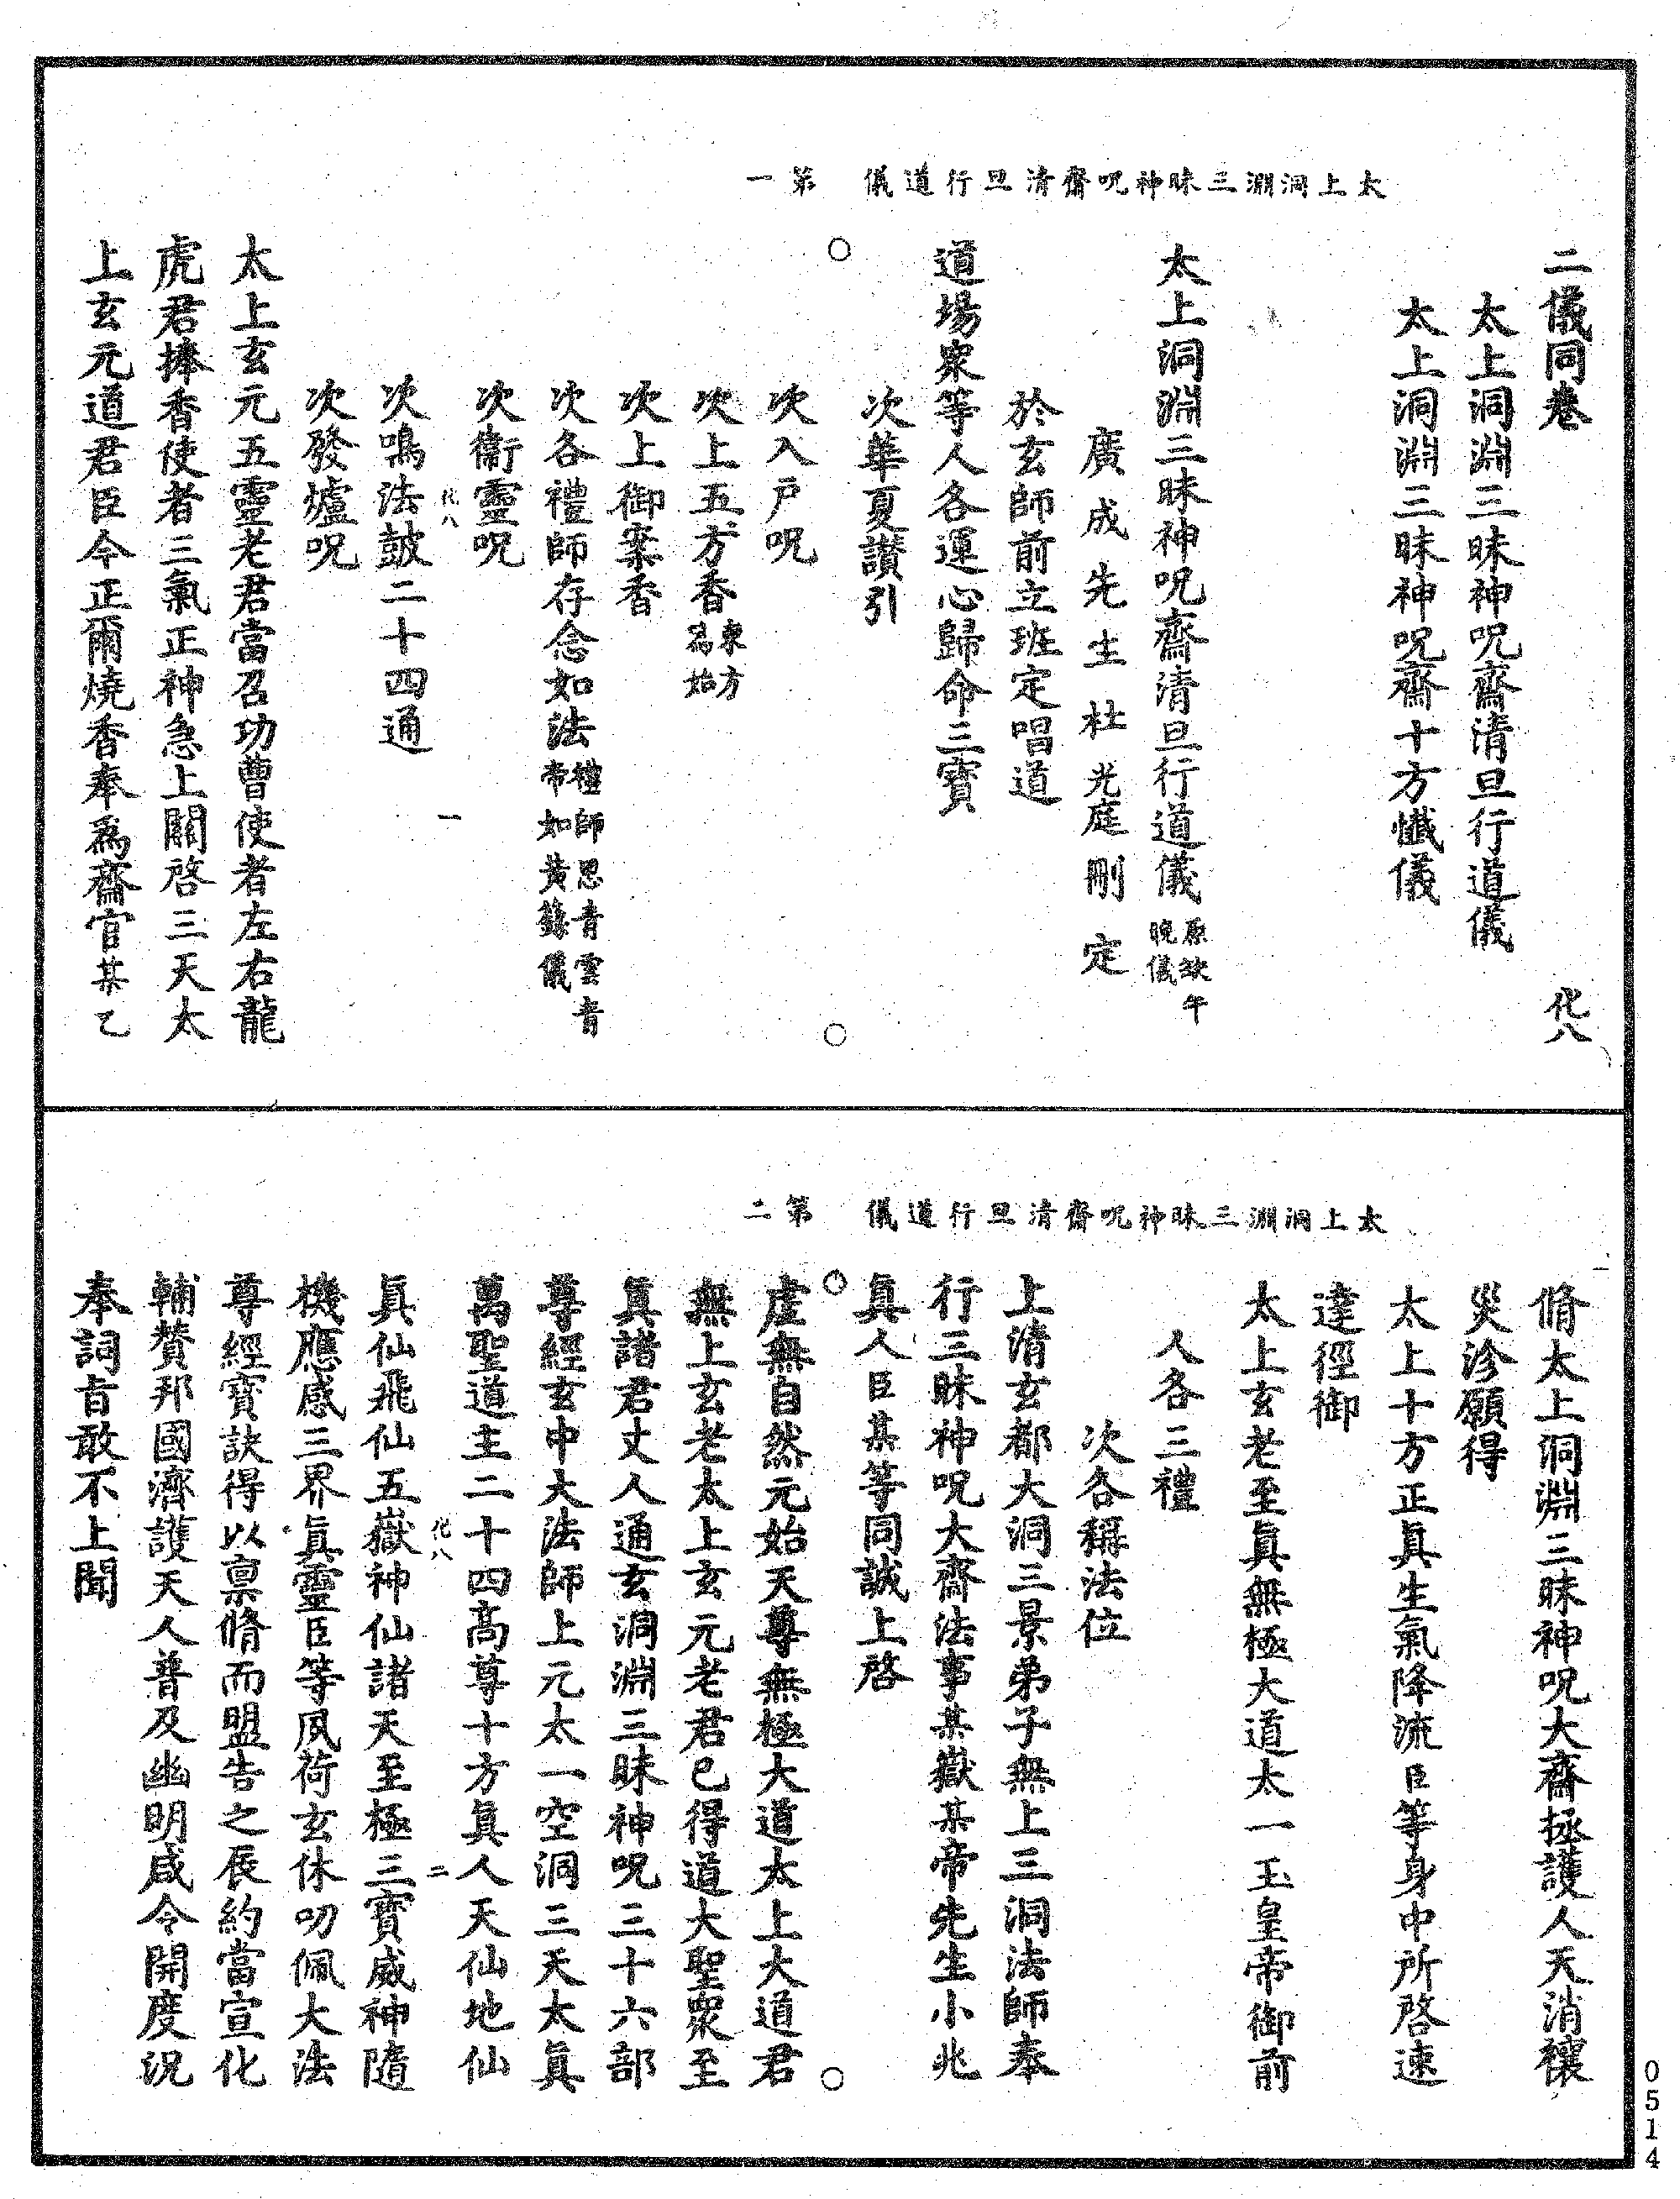 太上洞淵三昧神呪齋清旦行道儀　第一
二儀同卷　化八
太上洞淵三昧神呪齋清旦行道儀
太上洞淵三昧神呪齋十方懺儀
太上洞淵三昧神呪齋清旦行道儀原缺午晚儀
廣成先生杜光庭刪定
於玄師前立班定唱道
道場眾等人各運心歸命三寶
次華夏讃引
次入戶呪
次上五方香東方爲始
次上御案香
次各禮師存念如法禮師思青雲音帝如黃籙儀
次衞靈呪
化八　一
次鳴法鼓二十四通
次發爐呪
太上玄元五靈老君當召功曹使者左右龍
虎君捧香使者三氣正神急上關啓三天太
上玄元道君臣今正爾燒香奉爲齋官某乙
太上洞淵三昧神呪齋清旦行道儀　第二
脩太上洞淵三昧神呪大齋拯護人天消禳
災沴願得
太上十方正眞生氣降流臣等身中所啓速
達徑御
太上玄老至眞無極大道太一玉皇帝御前
人各三禮
次各稱法位
上清玄都大洞三景弟子無上三洞法師奉
行三昧神呪大齋法事某嶽某帝先生小兆
眞人臣某等同誠上啓
虛無自然元始天尊無極大道太上大道君
無上玄老太上玄元老君已得道大聖眾至
眞諸君丈人通玄洞淵三昧神呪三十六部
尊經玄中大法師上元太一空洞三天太眞
萬聖道主二十四高尊十方眞人天仙地仙
化八　二
眞仙飛仙五嶽神仙諸天至極三寶威神隨
機應感三界眞靈臣等夙荷玄休叨佩大法
尊經寶訣得以稟脩而盟告之辰約當宣化
輔贊邦國濟護天人普及幽明咸令開度況
奉詞旨敢不上聞
0514